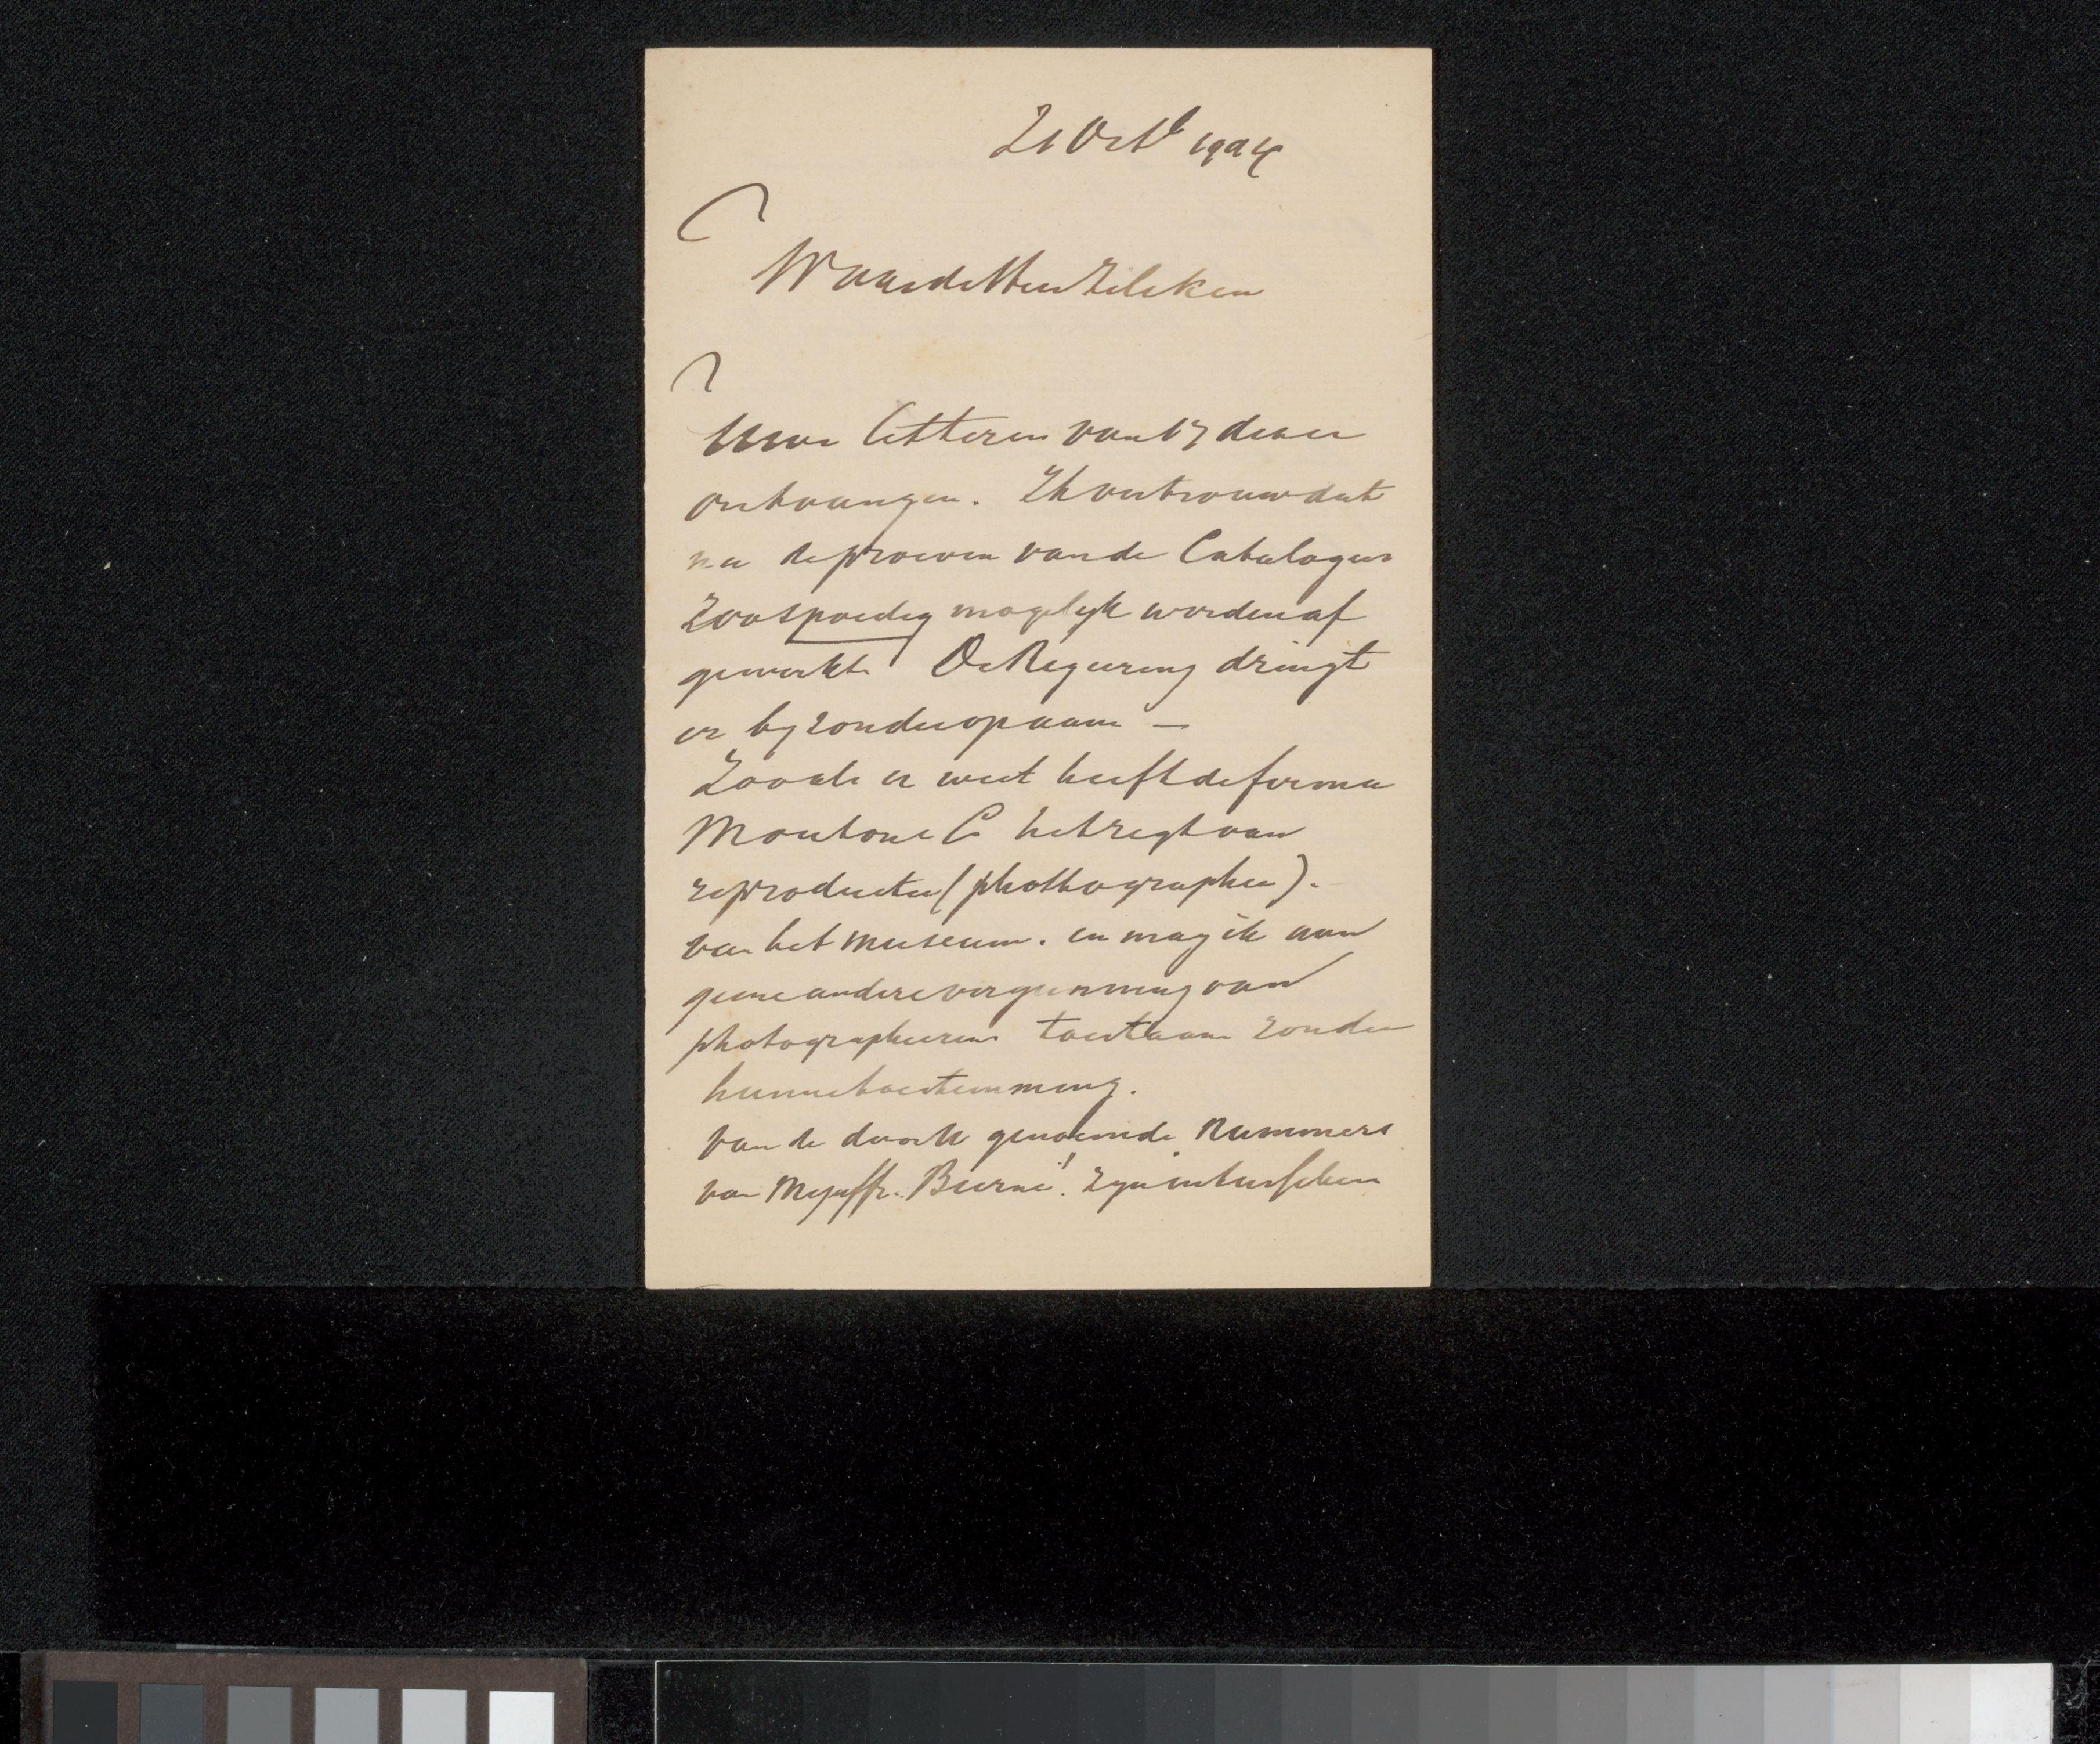 21 Octb 1904
Waarde Heer Zilcken
Uwe letteren van 17 dezer
ontvangen. Ik vertrouw dat
nu de proeven van de Catalogus
zoo spoedig mogelyk worden af
gewerkt. De Regeering dringt
er byzonder op aan —
Zooals u weet heeft de firma
Mouton & Co het regt van
reproductie (photographie).
van het museum. en mag ik aan
geene andere vergunning van
photographeeren toestaan zonder
hunne toestemming.
van de door U genoemde nummers
van Mejuffr. zyn intusschen